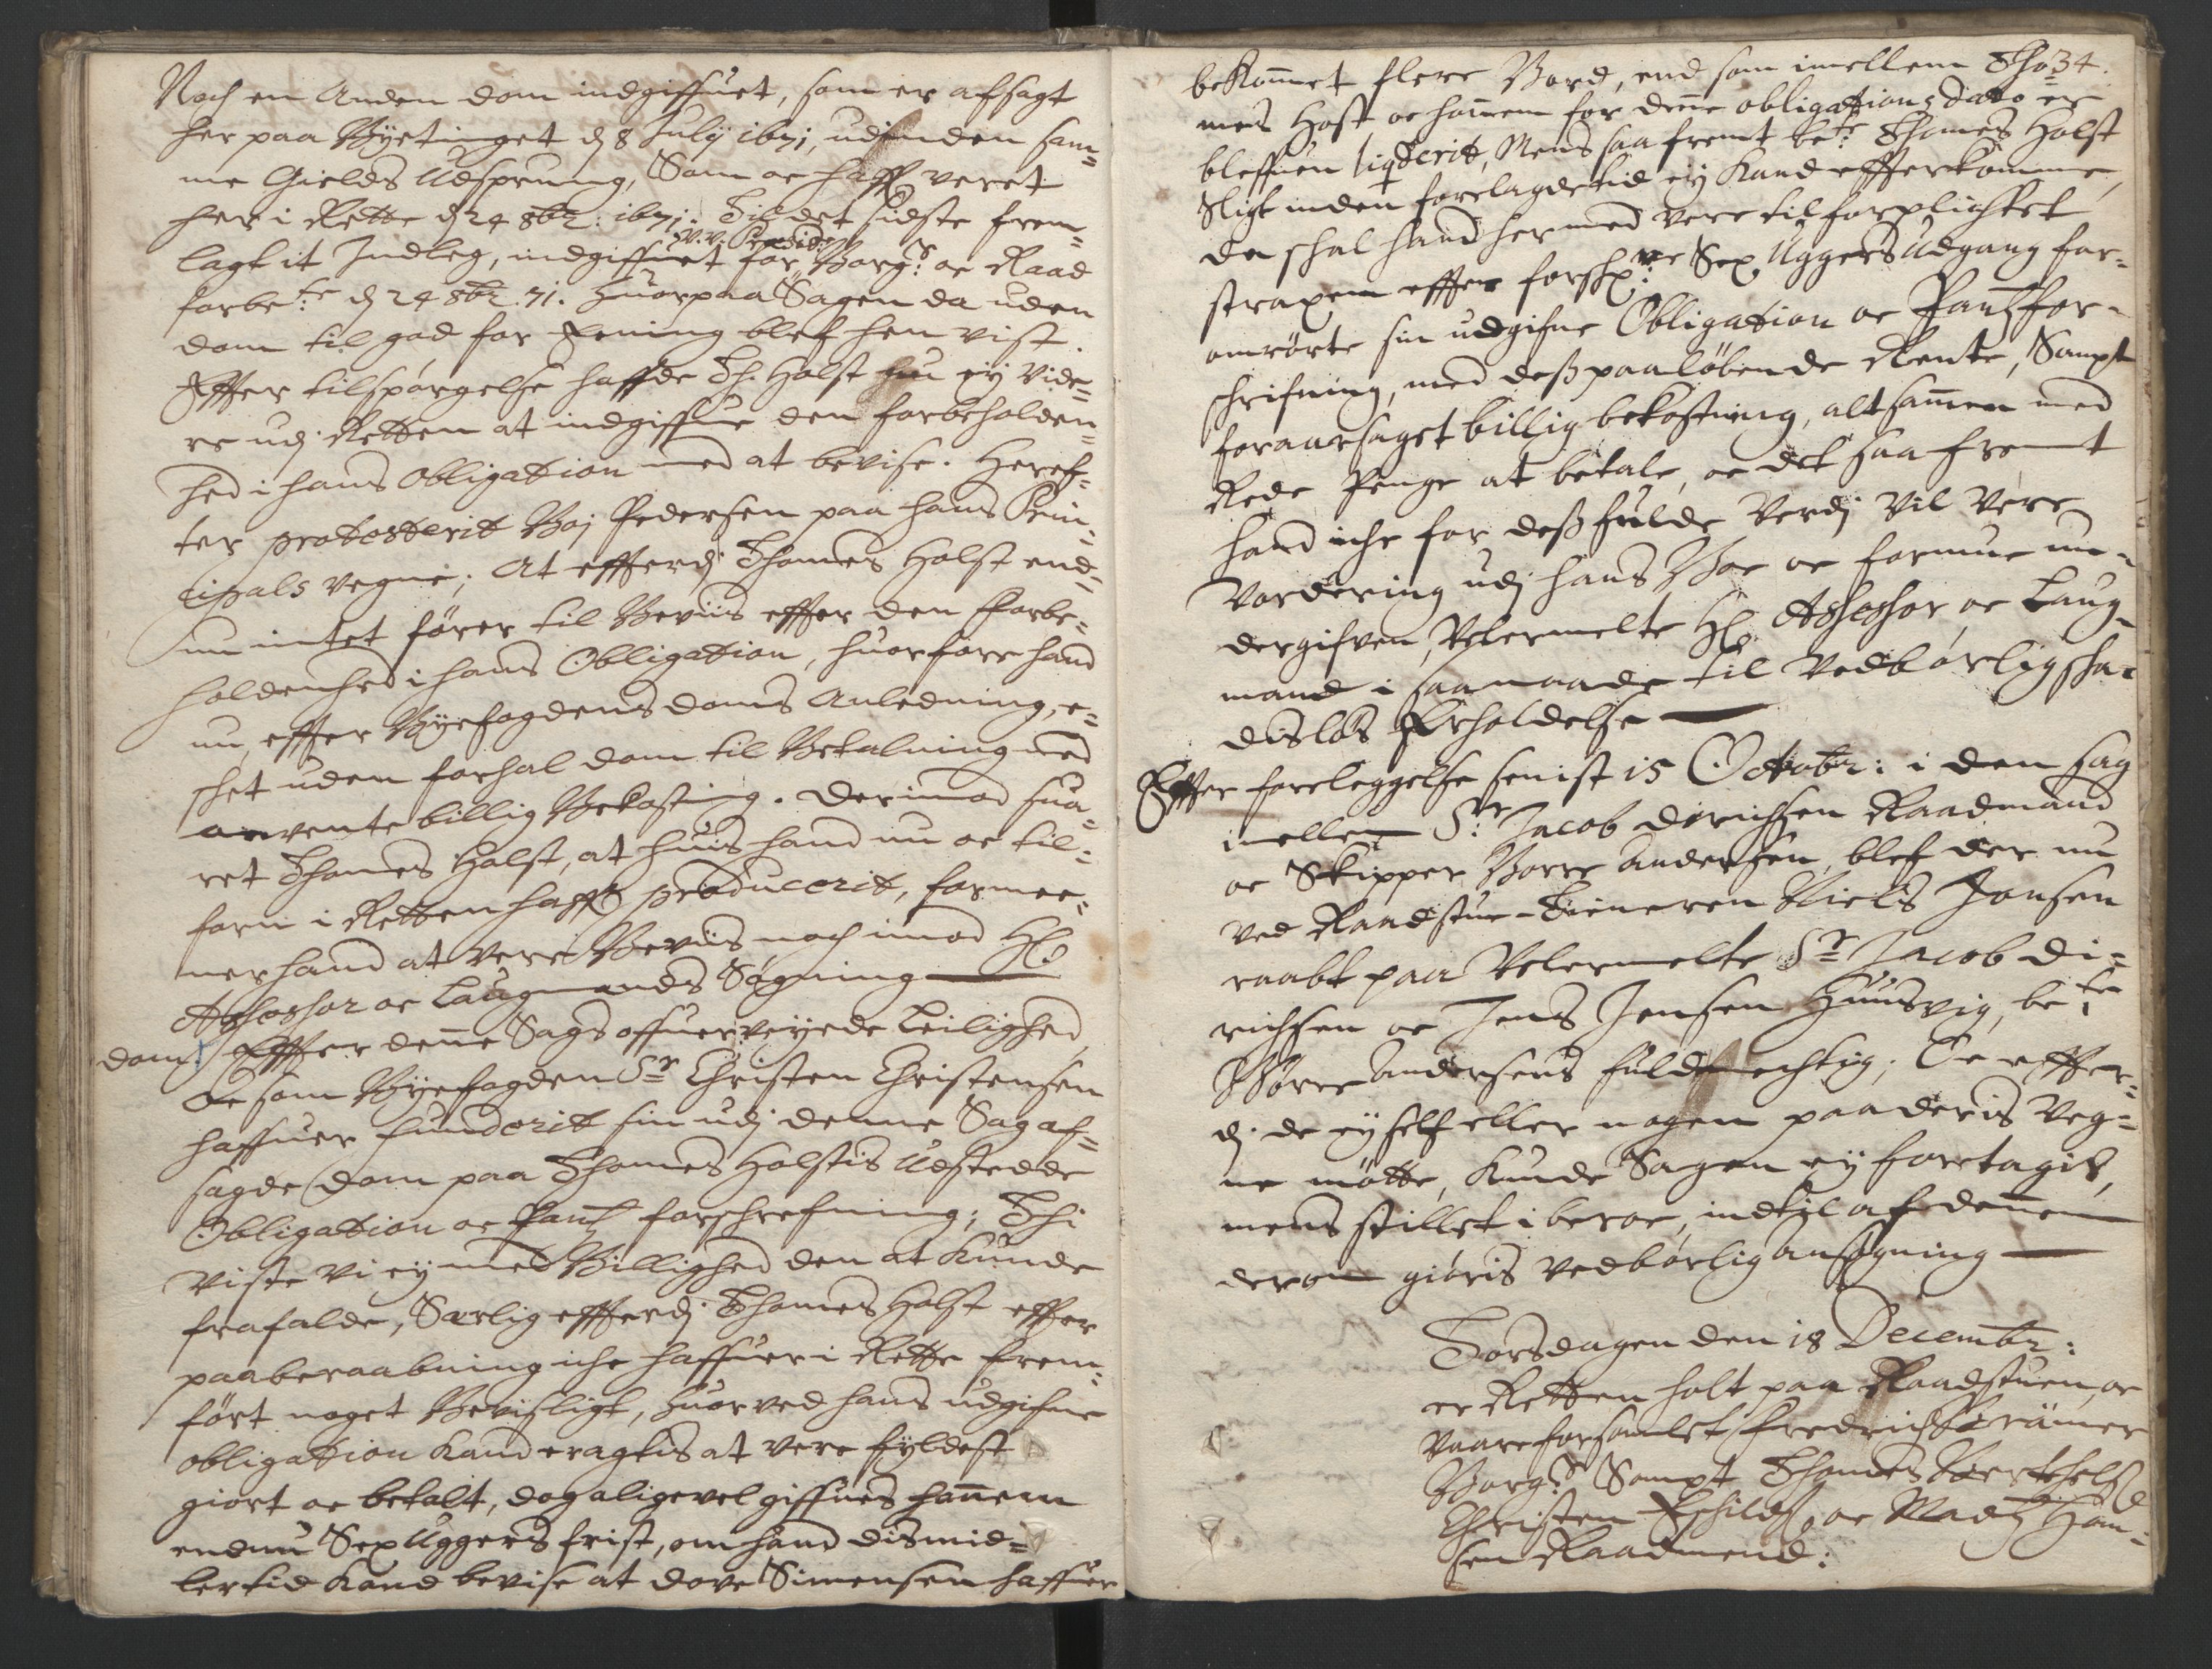 Noch en Anden dom indgiffuet, som er afsagt
her paa Byetinget d 8 July 1671, udj den sam=
me Gields Udsprung, Som oc haffr veret
her i Rette d 24 8br: 1671. Til det sidste frem=
lagt it Indleg, indgiffuet for Borg:s oc Raad
forbe:te d 24 8br. 71. Huorpaa Sagen da uden
dom til god for Eening blef hen vist.
Effter tilspørgelse haffde Th. Holst nu ey vide=
re udj Retten at indgiffue den forbeholden=
hed i hans Obligation med at bevise. Heref=
ter protesterit Boj Pedersen paa hans Prin=
cipals vegne; At effterdj Thomes Holst end=
nu intet fører til Beviis effter den forbe=
holdenhed i hans Obligation, huorfore hand
nu effter Byefogdens doms Anledning, e=
schet uden forhal dom til Betalning med
anvente billig Bekosting. Derimod sua=
ret Thomes Holst, at huis hand nu oc til=
forn i Retten haffr producerit, formee=
ner hand at vere Beviis noch imod Hr
Assessor oc Laugmands Søgning
dom: Effter denne Sags offuerveyede Leilighed,
Oc som Byefogden Sr Christen Christensen
haffuer funderit sin udj denne Sag af=
sagde dom paa Thomes Holstis Udstedde
Obligation oc Pant forschrefning; Thi
viste vi ey med Billighed den at kunde
frafalde, Særlig effterdj Thomes Holst effter
paaberaabning iche haffuer i Rette frem=
ført noget Bevisligt, huorved hans udgifne
obligation kand eragtis at vere fyldest
giort oc betalt, dog aligevel giffues hannem
endnu Sex Uggers frist, om hand dismid=
lertid kand bevise at dove Simensen haffuer
34.
bekommet flere Bord, end som imellem Tho=
mes Holst oc hannem for denne obligations dato er
bleffuen liqviderit, Mens saa fremt be:te Thomes Holst
Sligt inden forelagde tid ey kand effterkomme,
da schal hand hermed vere tilforplichtet
straxen effter forschr:ne Sex Uggers Udgang for=
omrørte sin udgifne Obligation oc Pantfor=
schrifning, med dess paaløbende Rente, Sampt
foraarsaget billig bekostning, altsammen med
Rede Penge at betale, oc det saa fremt
hand iche for dess fulde Verdj vil vere
Vordering udj hans Boe oc formue un=
dergifven, Velermelte Hr Assessor oc Laug=
mand i saa maade til vedbørlig scha=
disløs Erholdelse
Effter foreleggelse senist 15 Octobr: i den sag
imellem Sr: Jacob Dirichsen Raadmand
oc Skipper Børre Andersen, blef der nu
ved Raadstue-Tieneren Niels Jonsen
raabt paa Velermelte Sr Jacob Di=
richsen oc Jens Jensen Huusvig, be:te
Børre Andersens fuldmechtig; Oc effter=
dj de ey self eller nogen paa deris Veg=
ne møtte, kunde Sagen ey foretagis,
mens stillet i beroe, indtil af dennem
derom giøris vedbørlig ansøgning
Torsdagen den 18 Decembr:
er Retten holt paa Raadstuen, oc
vaare forsamlet Fredrich
Borg:s Sampt Thomes
Christen oc Madz Han=
sen Raadmend: